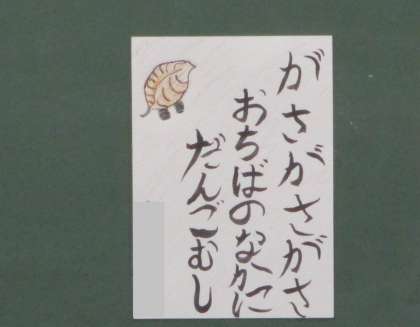 がさがさがさ
おちばのなかに
だんごむし